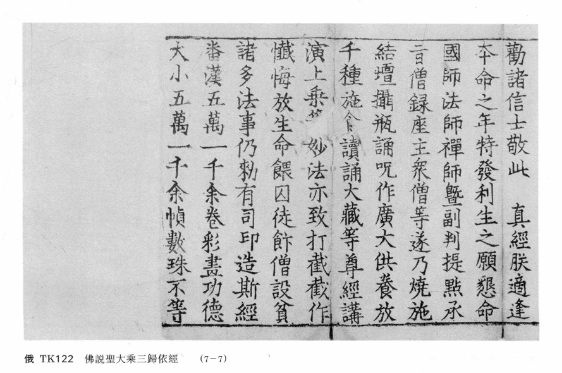 勸諸信士敬此　真經朕適逢
本命之年特發利生之願懇命
國師法師禪師暨副判提點承
旨僧録座主衆僧等遂乃燒施
結壇攝瓶誦呪作廣大供養放
千種施食讀誦大藏等尊經講
演上乘等妙法亦致打截截作
懺悔放生命餵囚徒飰僧設貧
諸多法事仍勑有司印造斯經
番漢五萬一千余卷彩畫功德
大小五萬一千余幀數珠不等
俄 TK122　佛説聖大乘三歸依經　(7-7)